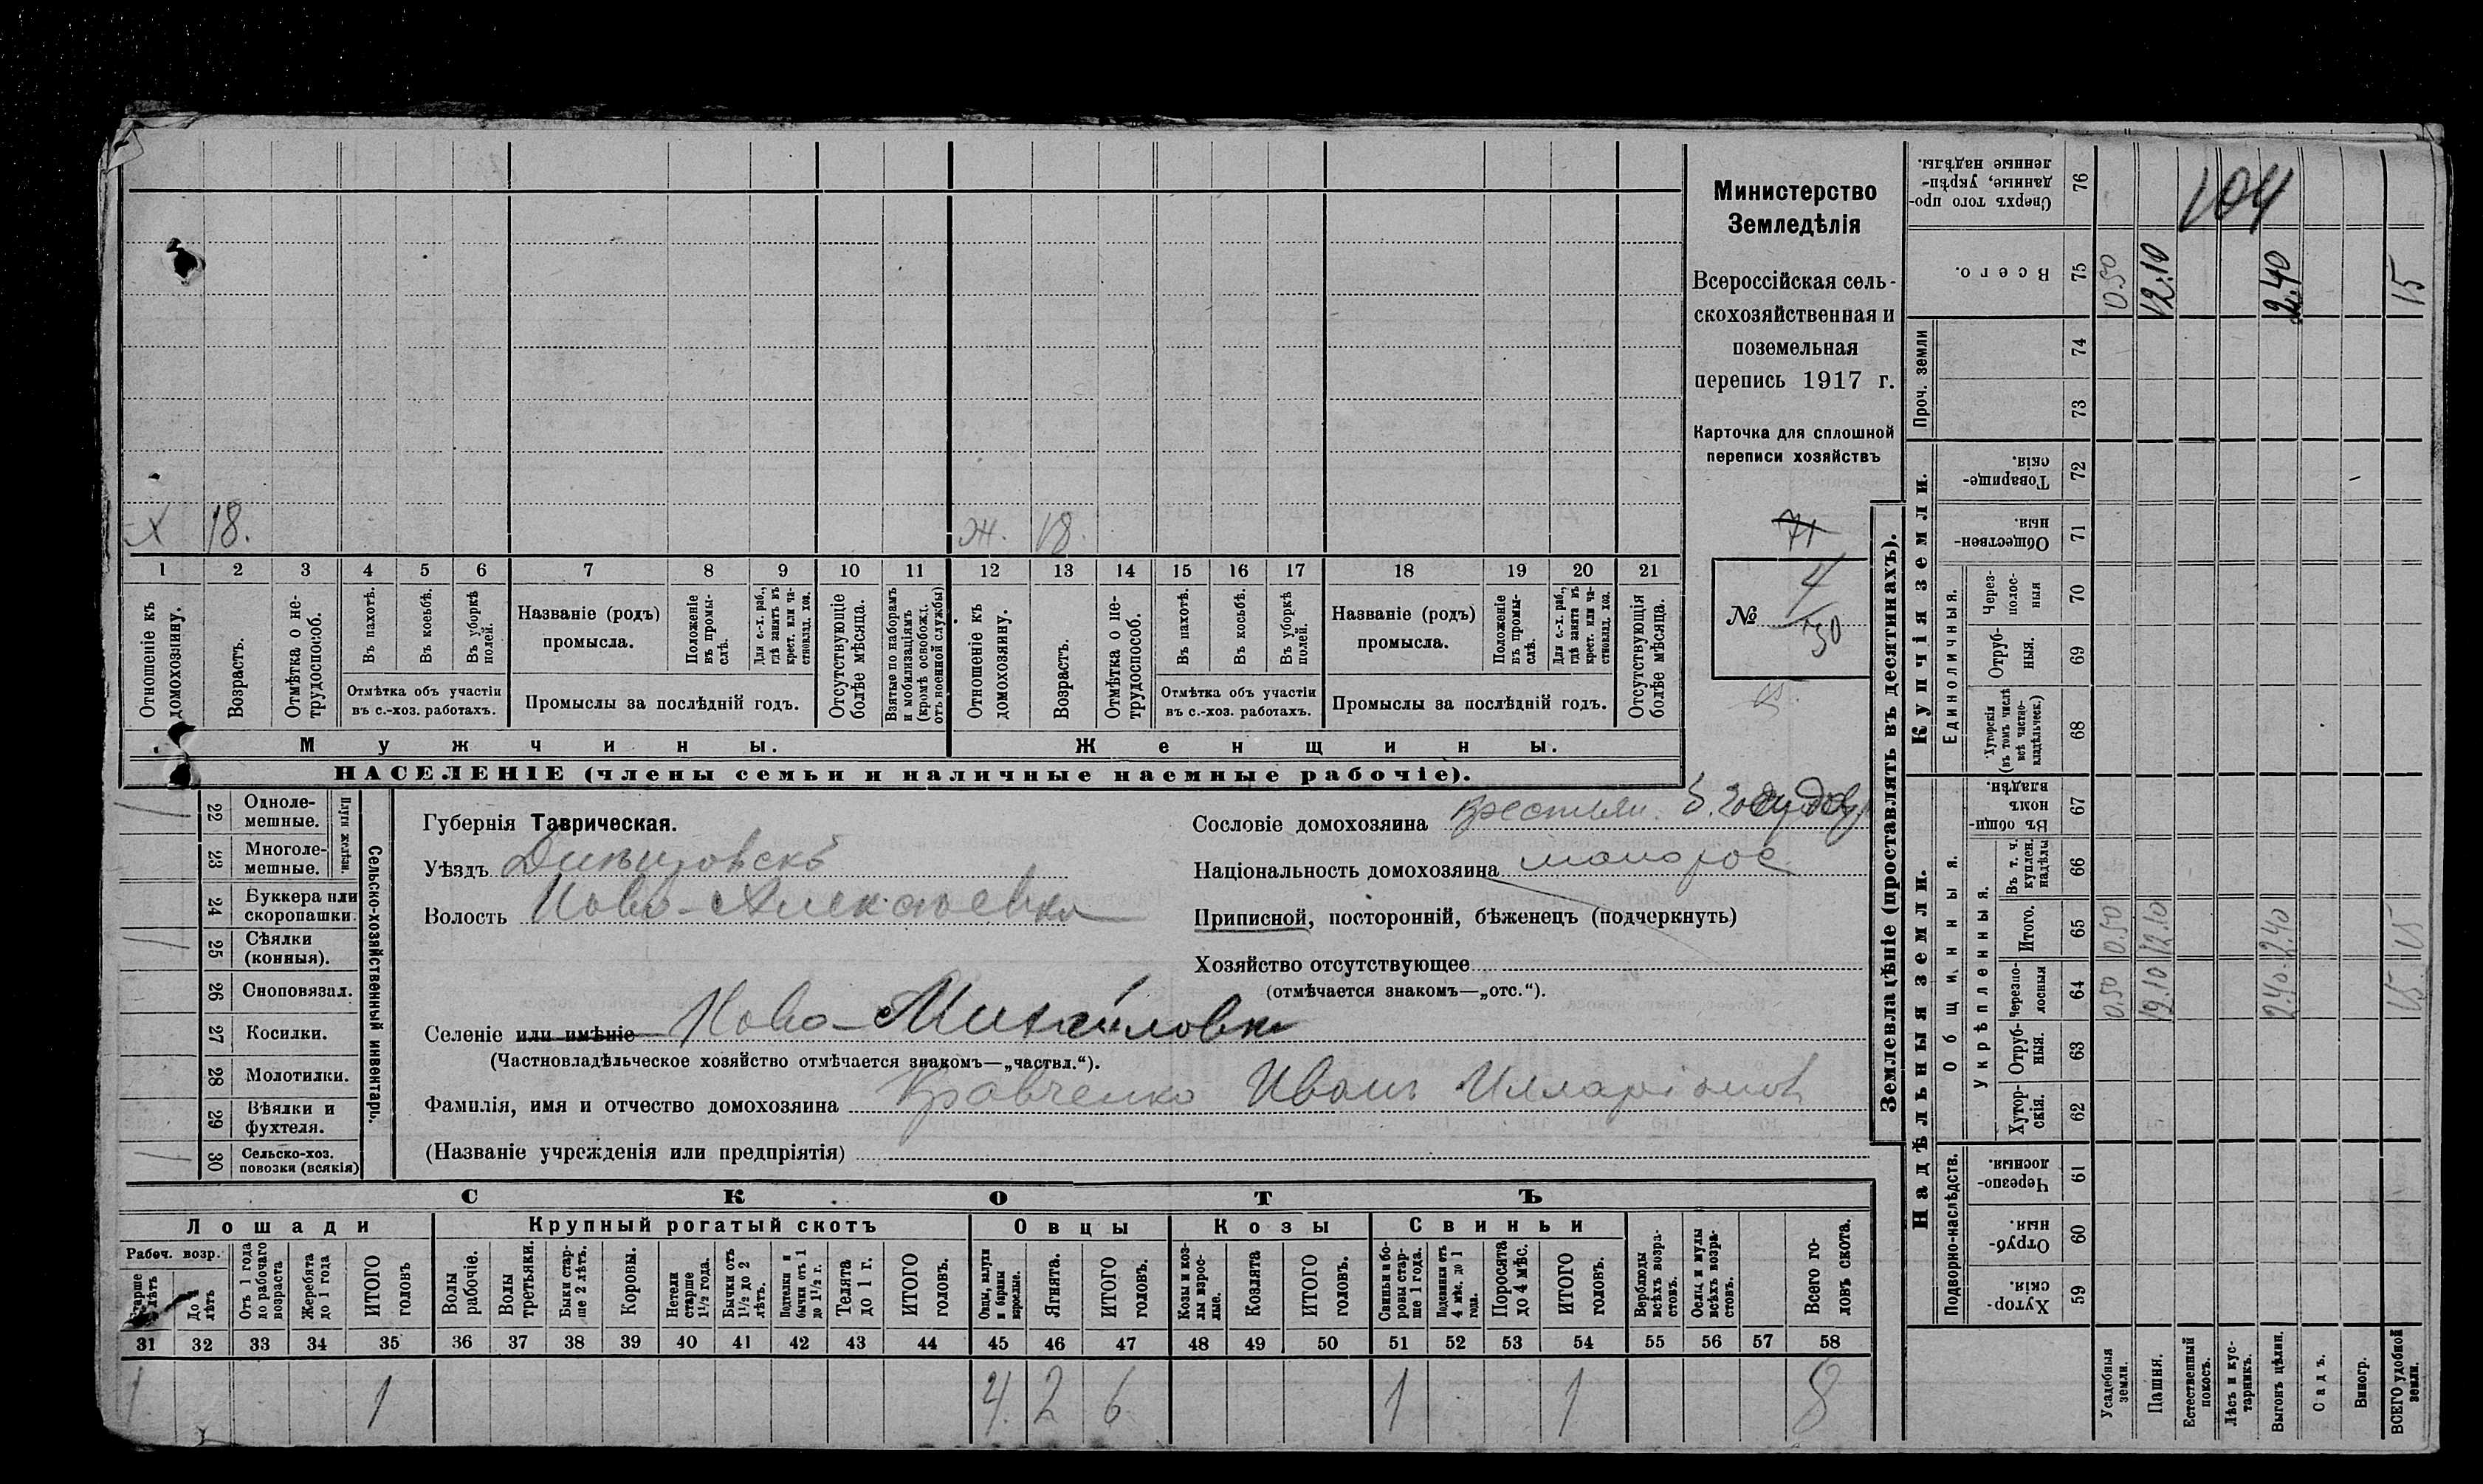 Министерство
Земледѣлія
Всероссійская сель-
скохозяйственная и
поземельная
перепись 1917 г.
Карточка для сплошной
переписи хозяйствъ
71
№ 4
130
15.
Х 18. Ж. 18.
1 2 3 4 5 6 7 8 9 10 11 12 13 14 15 16 17 18 19 20 21
Отношеніе къ домохозяину.
Возрастъ.
Отмѣтка о не-
трудоспособ.
Въ пахотѣ.
Въ косьбѣ.
Въ уборкѣ полей.
Отмѣтка объ участіи
въ с.-хоз. работахъ.
Названіе (родъ)
промысла.
Положеніе
въ промы-
слѣ.
Для с.-х. раб.,
гдѣ занятъ въ
крест. или ча-
стновлад. хоз.
Промыслы за послѣдній годъ.
Отсутствующіе
болѣе мѣсяца.
Взятые по наборамъ
и мобилизаціямъ
(кромѣ освобожд.
отъ военной службы)
Отношеніе къ
домохозяину.
Возрастъ.
Отмѣтка о не-
трудоспособ.
Въ пахотѣ.
Въ косьбѣ.
Въ уборкѣ
полей.
Отмѣтка объ участіи
въ с.-хоз. работахъ.
Названіе (родъ)
промысла.
Положеніе
въ промы-
слѣ.
Для с.-х. раб.,
гдѣ занята въ
крест. или ча-
стновлад. хоз.
Промыслы за послѣдній годъ.
Отсутствующія
болѣе мѣсяца.
Мужчины.
Женщины.
НАСЕЛЕНІЕ (члены семьи и наличные наемные рабочіе).
Сельско-хозяйственный инвентарь.
Плуги желѣзн.
1 22 Одноле-
мешные.
23 Многоле-
мешные.
24 Буккера или
скоропашки.
1 25 Сѣялки
(конныя).
26 Сноповязал.
27 Косилки.
28 Молотилки.
29 Вѣялки и
фухтеля.
1 30 Сельско-хоз.
повозки (всякія)
Губернія Таврическая.
Уѣздъ Днѣпровскъ
Волость Ново-Алексѣевка
Сословіе домохозяина крестьян. б.
Національность домохозяина малорос.
Приписной, посторонній, бѣженецъ (подчеркнуть)
Хозяйство отсутствующее
(отмѣчается знакомъ—„отс.“).
Селеніе или имѣніе Ново-Михайловка
(Частновладѣльческое хозяйство отмѣчается знакомъ—„частвл.“).
Фамилія, имя и отчество домохозяина Кравченко Иванъ Илларіонов
(Названіе учрежденія или предпріятія)
СКОТЪ
Лошади
Крупный рогатый скотъ
Овцы
Козы
Свиньи
Рабоч. возр.
Старше лѣтъ
До 4 лѣтъ
Отъ 1 года
до рабочаго
возраста
Жеребята
до 1 года
ИТОГО
головъ
Волы
рабочіе.
Волы
третьяки.
Быки стар-
ше 2 лѣтъ.
Коровы.
Нетели
старше
1½ года.
Бычки отъ
1½ до 2
лѣтъ.
Подтелки и
бычки отъ 1
до 1½ г.
Телята
до 1 г.
ИТОГО
головъ.
Овцы, валухи
и бараны
взрослые.
Ягнята.
ИТОГО
головъ.
Козы и коз-
лы взрос-
лые.
Козлята
ИТОГО
головъ.
Свиньи и бо-
ровы стар-
ше 1 года.
Подсвинки отъ
4 мѣс. до 1
года.
Поросята
до 4 мѣс.
ИТОГО
головъ.
Верблюды
всѣхъ возра-
стовъ.
Ослы и мулы
всѣхъ возра-
стовъ.
Всего го-
ловъ скота.
31 32 33 34 35 36 37 38 39 40 41 42 43 44 45 46 47 48 49 50 51 52 53 54 55 56 57 58
1 1 4. 2 6 1 1 8
Землевладѣніе (проставлять въ десятинахъ).
Надѣльныя земли.
Купчія земли.
Проч. земли
Подворно-наслѣдств.
Общинныя.
Укрѣпленныя.
Единоличныя.
Сверхъ того про-
данные, укрѣп-
ленные надѣлы.
76
104
Всего.
75
0.50
12.10
2.40
15
74
73
Товарище-
скія.
72
Обществен-
ныя.
71
Через-
полос-
ныя
70
Отруб-
ныя.
69
Хуторскія
(въ томъ числѣ
всѣ частно-
владѣльческ.)
68
Въ общи-
номъ
владѣн.
67
Въ т. ч.
куплен.
надѣлы
66
Итого.
65
0.50
12.10
2.40
15
Черезпо-
лосныя
64
0.50
12.10
2.40
15.
Отруб-
ныя.
63
Хутор-
скія.
62
Черезпо-
лосныя.
61
Отруб-
ныя.
60
Хутор-
скія.
59
Усадебныя
земли.
Пашня.
Естественный
покосъ.
Лѣсъ и кус-
тарникъ.
Выгонъ цѣлин.
Садъ.
Виногр.
ВСЕГО удобной
земли.